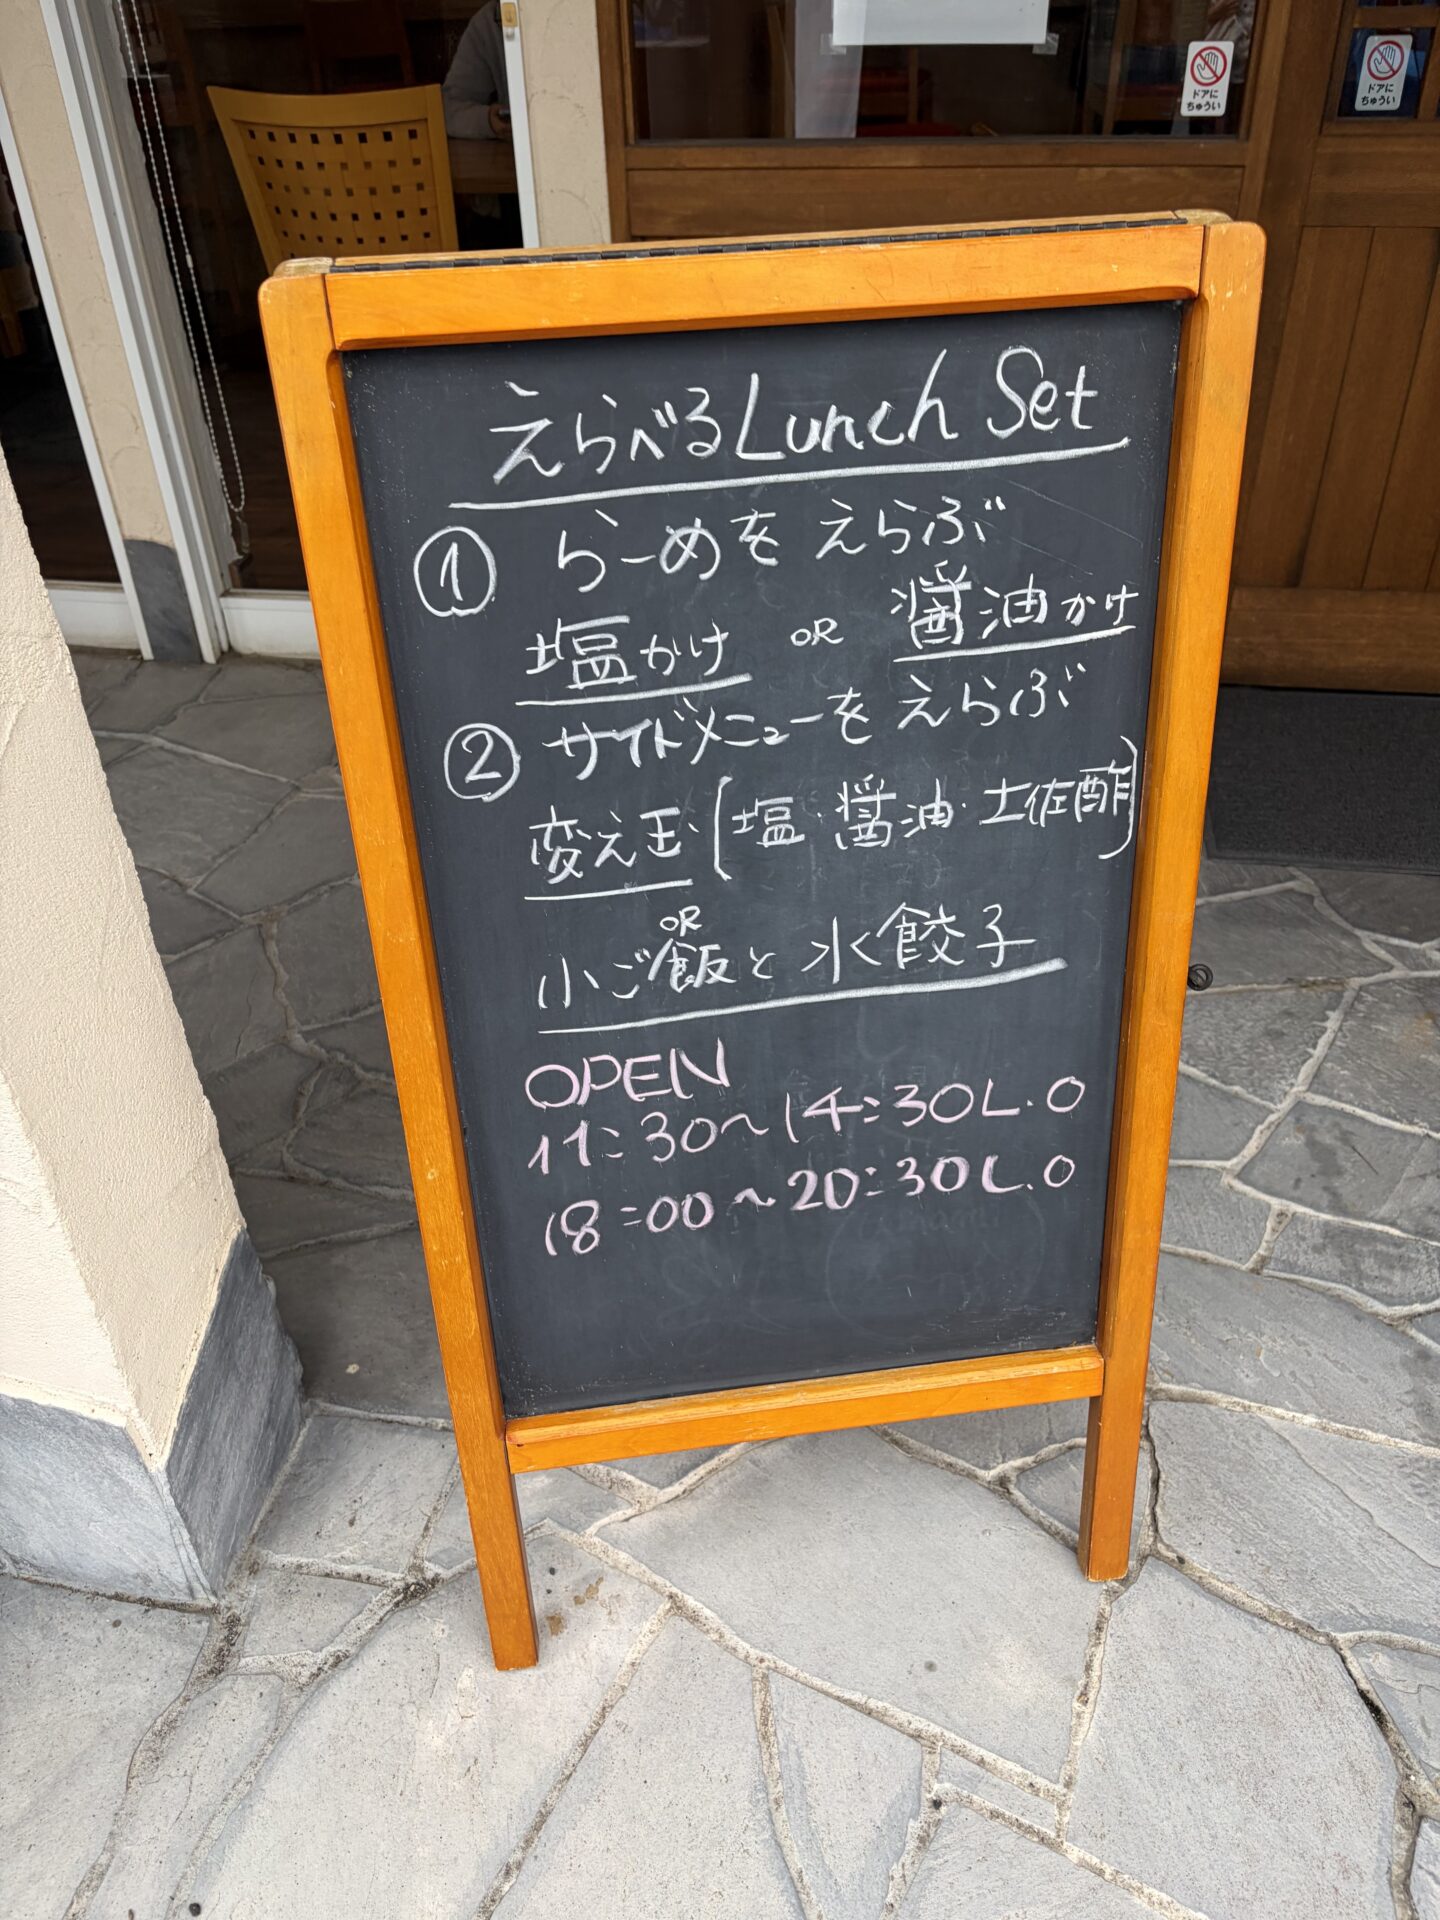 ドアに
ちゅうい
ドアに
ちゅうい
えらべるLunch Set
① らーめを えらぶ
塩かけ OR 醤油かけ
② サイドメニューを えらぶ
変え玉・[塩・醤油・土佐酢]
OR
小ご飯と水餃子
OPEN
11:30〜14:30 L.O
18:00〜20:30 L.O